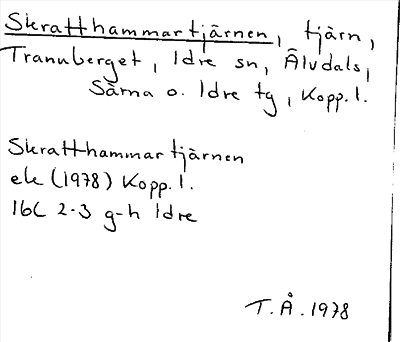 Skratthammartjärnen, tjärn,
Tranuberget, Idre sn, Älvdals,
Särna o. Idre tg, Kopp. l.
Skratthammartjärnen
ek (1978) Kopp. l.
16C 2-3 g-h Idre
T.Å. 1978